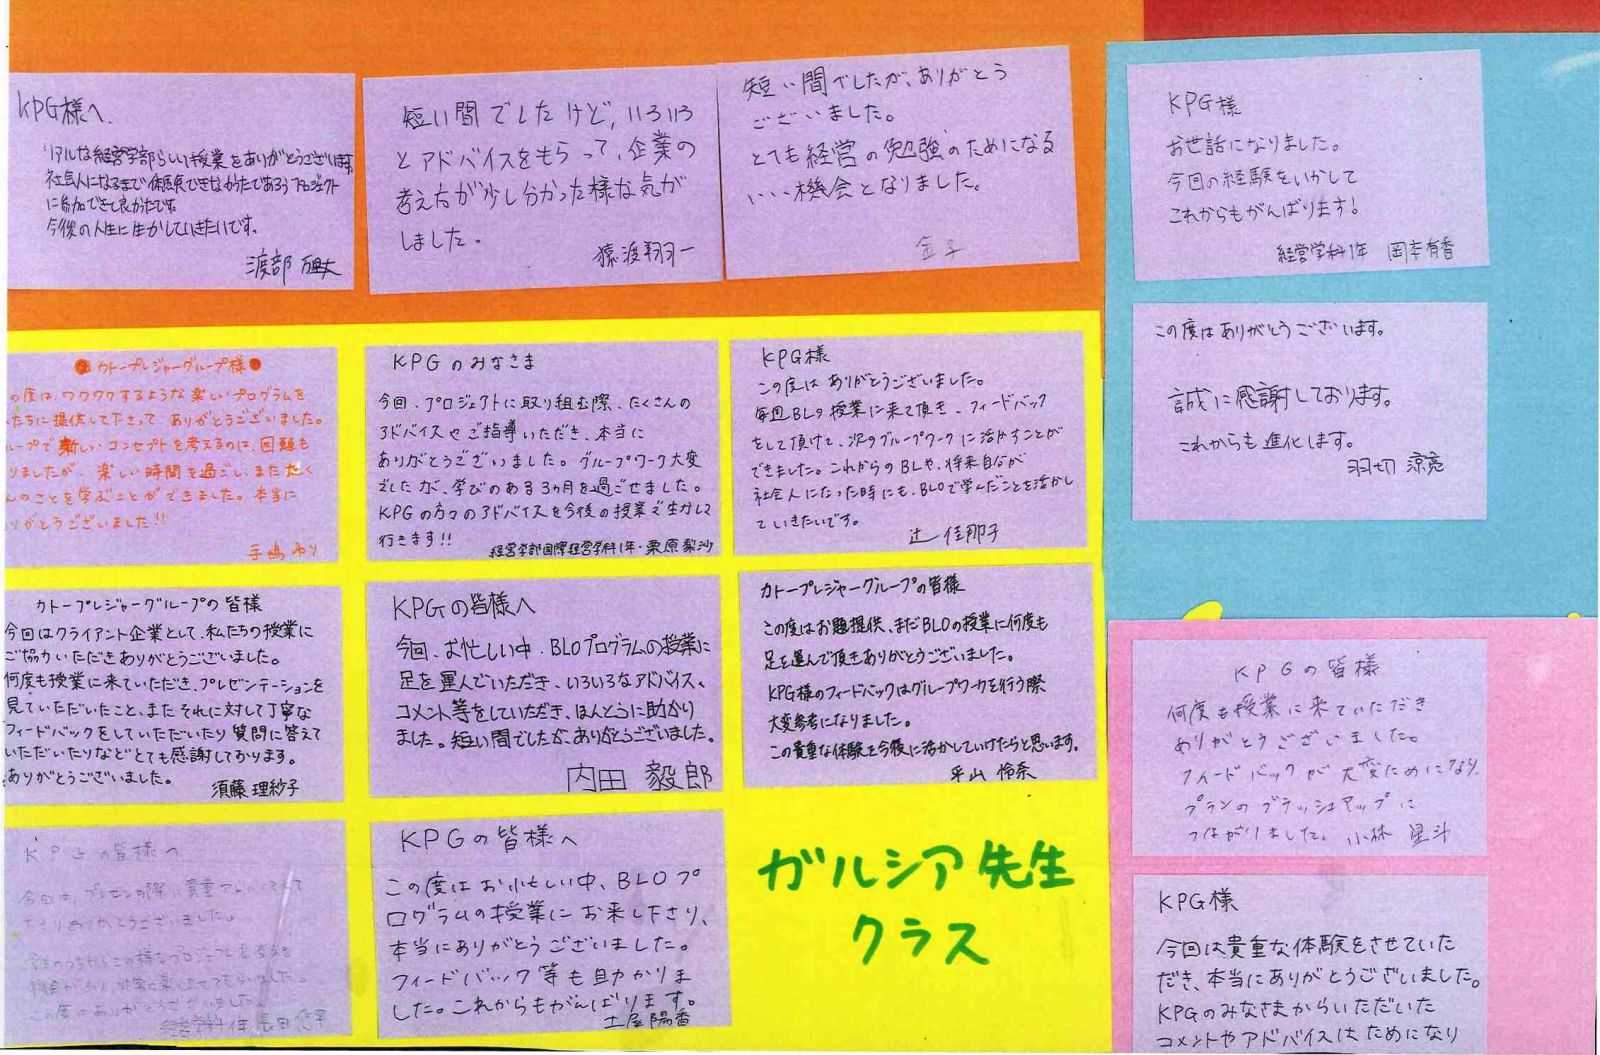 KPG様へ
リアルな経営学部らしい授業をありがとうございます。
社会人になるまで体験できなかったであろうプロジェクト
に参加できて良かったです。
今後の人生に生かしていきたいです。
渡部
短い間でしたけど、いろいろ
とアドバイスをもらって、企業の
考え方が少し分かった様な気が
しました。
猿渡翔一
短い間でしたが、ありがとう
ございました。
とても経営の勉強のためになる
いい機会となりました。
金子
KPG様
お世話になりました。
今回の経験をいかして
これからもがんばります!
経営学科1年 岡本有香
この度はありがとうございます。
誠に感謝しております。
これからも進化します。
羽切 涼亮
カトープレジャーグループ様
の度は、ワクワクするような楽しいプログラムを
たちに提供して下さって、ありがとうございました。
ループで新しいコンセプトを考えるのは、困難も
りましたが、楽しい時間を過ごし、またたく
んのことを学ぶことができました。本当に
りがとうございました!!
手嶋 ゆり
KPGのみなさま
今回、プロジェクトに取り組む際、たくさんの
アドバイスやご指導いただき、本当に
ありがとうございました。グループワーク大変
でしたが、学びのある3ヵ月を過ごせました。
KPGの方々のアドバイスを今後の授業で生かして
行きます!!
経営学部国際経営学科1年・栗原梨沙
KPG様
この度はありがとうございました。
毎週BLの授業に来て頂き、フィードバック
をして頂けて、次のグループワークに活かすことが
できました。これからのBLや、将来自分が
社会人になった時にも、BL0で学んだことを活かし
ていきたいです。
辻 佳那子
カトープレジャーグループの皆様
今回はクライアント企業として、私たちの授業に
ご協力いただきありがとうございました。
何度も授業に来ていただき、プレゼンテーションを
見ていただいたこと、またそれに対して丁寧な
フィードバックをしていただいたり質問に答えて
いただいたりなどとても感謝しております。
ありがとうございました。
須藤理紗子
KPGの皆様へ
今回、お忙しい中、BL0プログラムの授業に
足を運んでいただき、いろいろなアドバイス、
コメント等をしていただき、ほんとうに助かり
ました。短い間でしたが、ありがとうございました。
内田 毅郎
カトープレジャーグループの皆様
この度はお題提供、まだBL0の授業に何度も
足を運んで頂きありがとうございました。
KPG様のフィードバックはグループワークを行う際
大変参考になりました。
この貴重な体験を今後に活かしていけたらと思います。
平山 怜奈
KPGの皆様
何度も授業に来ていただき
ありがとうございました。
フィードバックが大変ためになり、
プランのブラッシュアップに
つながりました。小林 星斗
KPGの皆様へ
今回は、プレゼンの際に貴重
ありがとうございました。
この度はありがとうございました。
KPGの皆様へ
この度はお忙しい中、BLOプ
ログラムの授業にお来し下さり、
本当にありがとうございました。
フィードバック等も助かりま
した。これからもがんばります。
土屋陽香
ガルシア先生
クラス
KPG様
今回は貴重な体験をさせていた
だき、本当にありがとうございました。
KPGのみなさまからいただいた
コメントやアドバイスはためになり